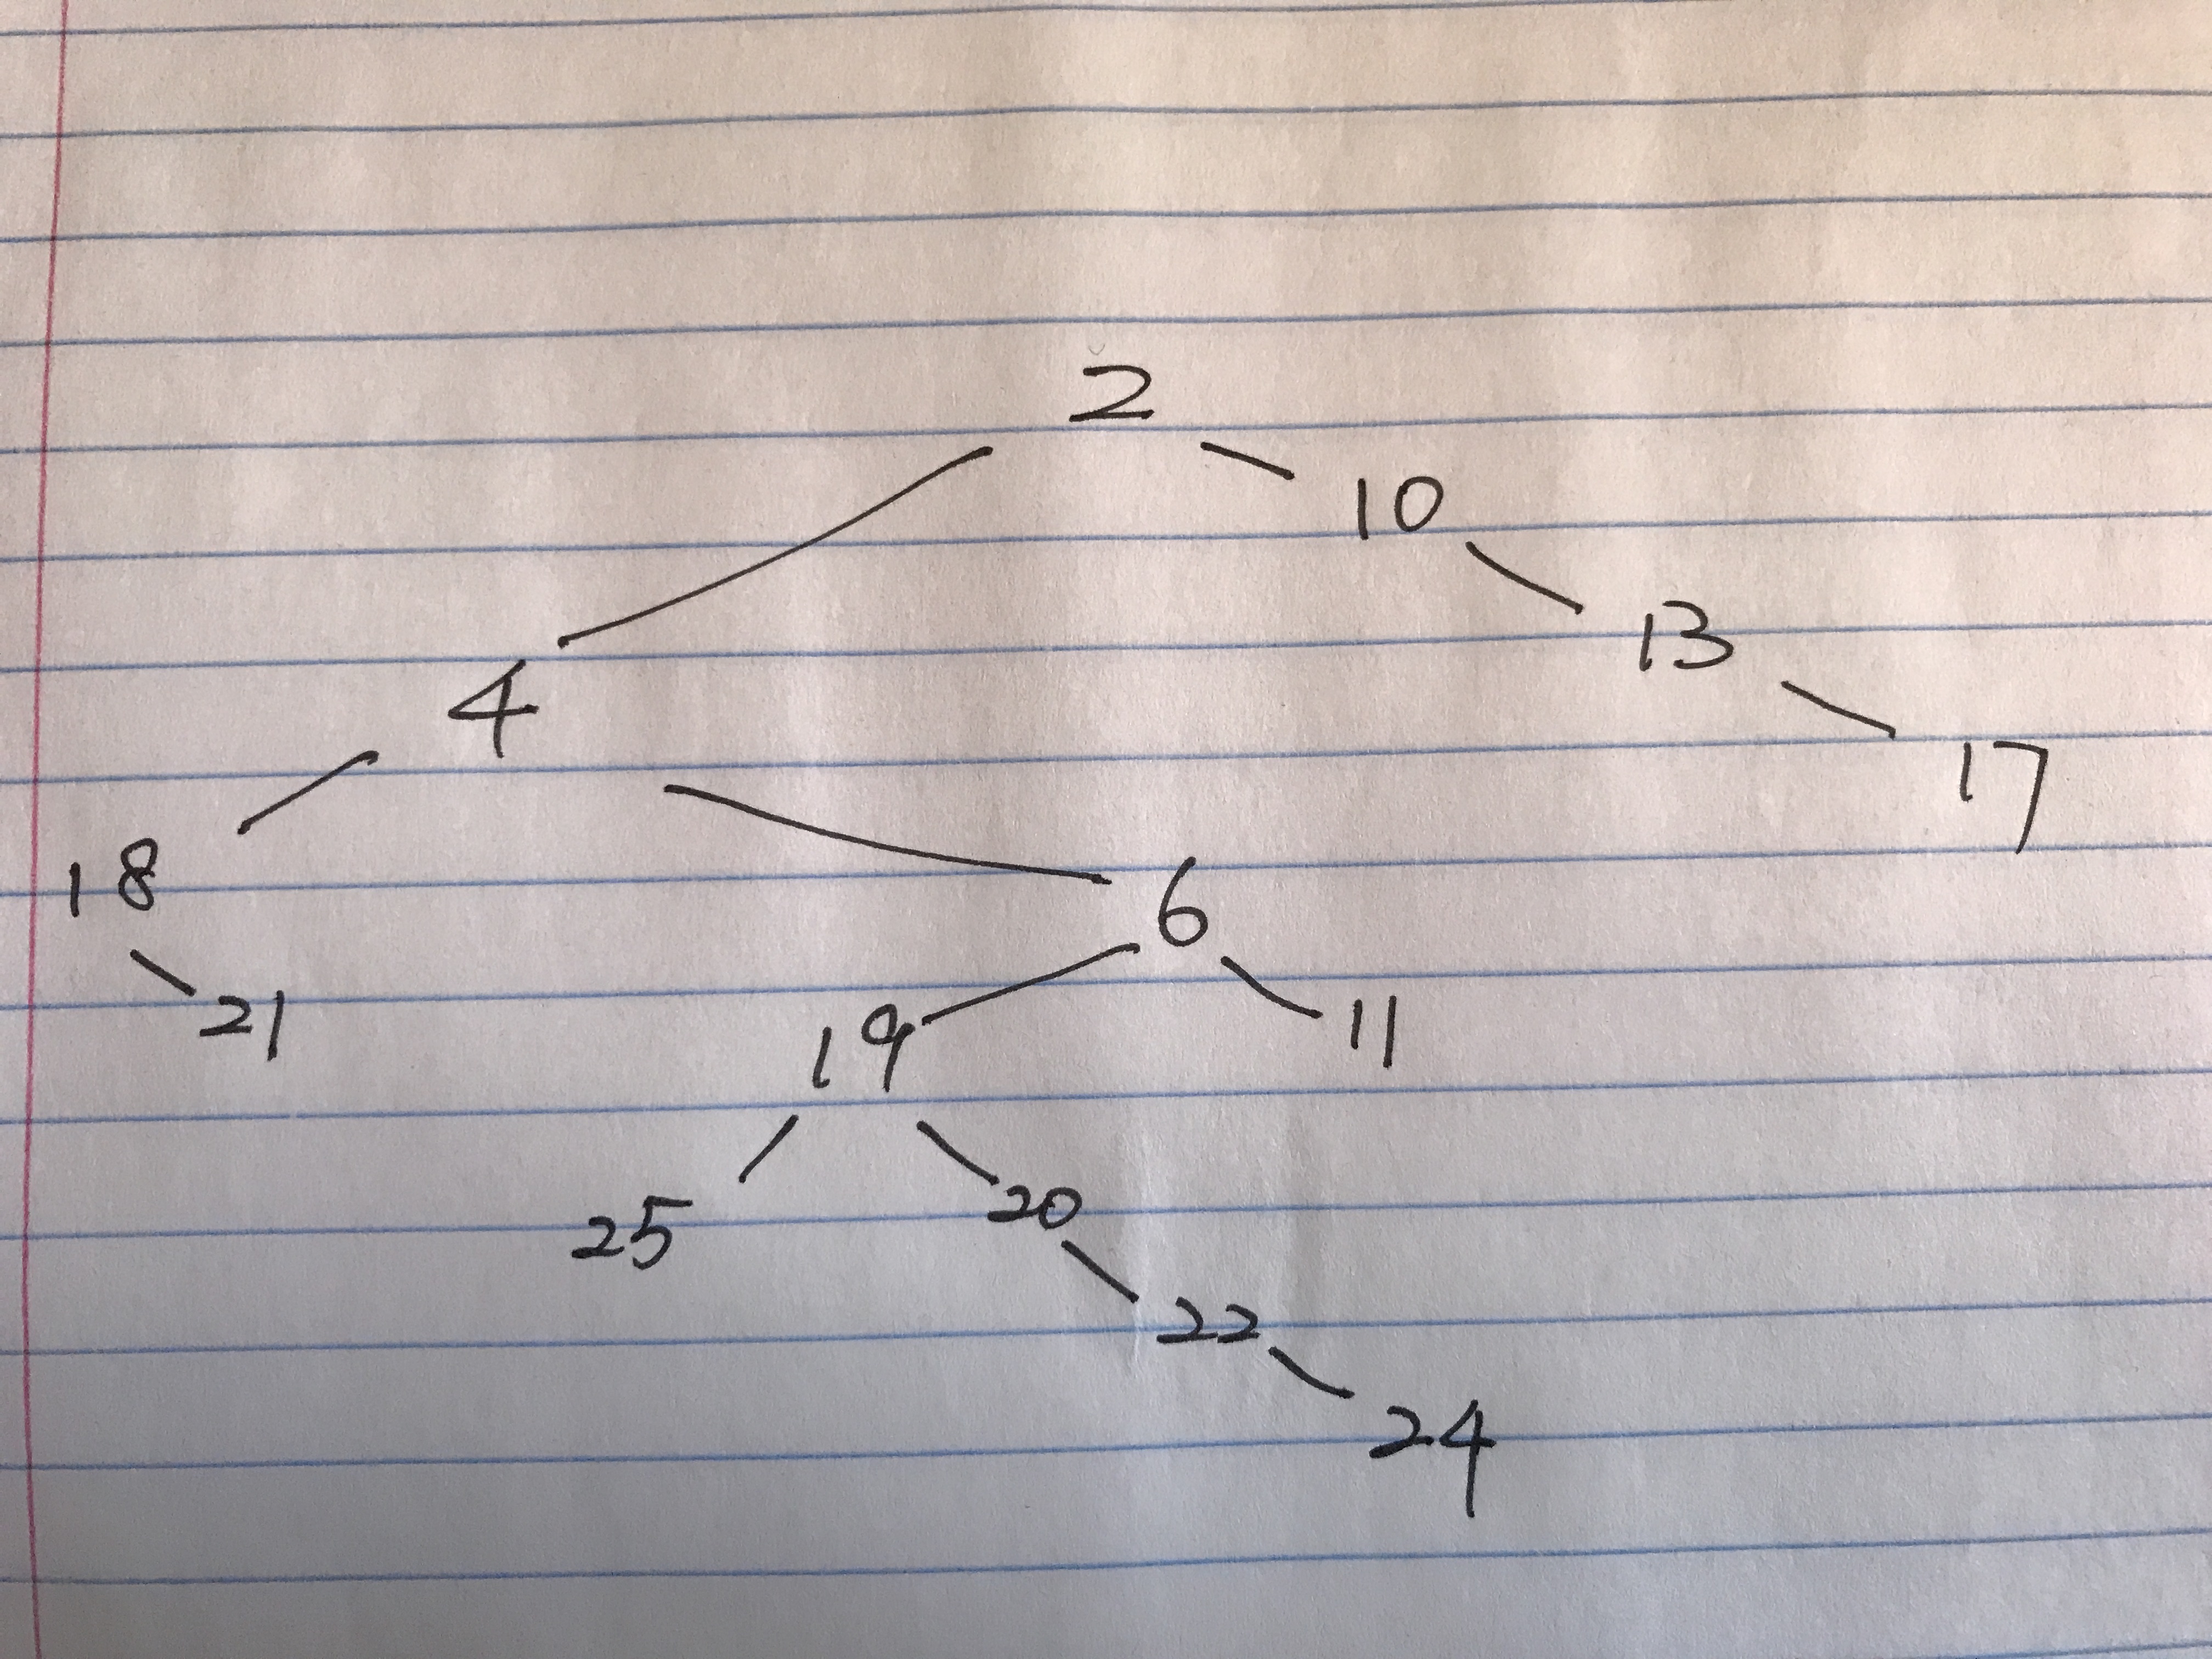 2
10
13
4
17
18
6
21
19
11
25
20
22
24